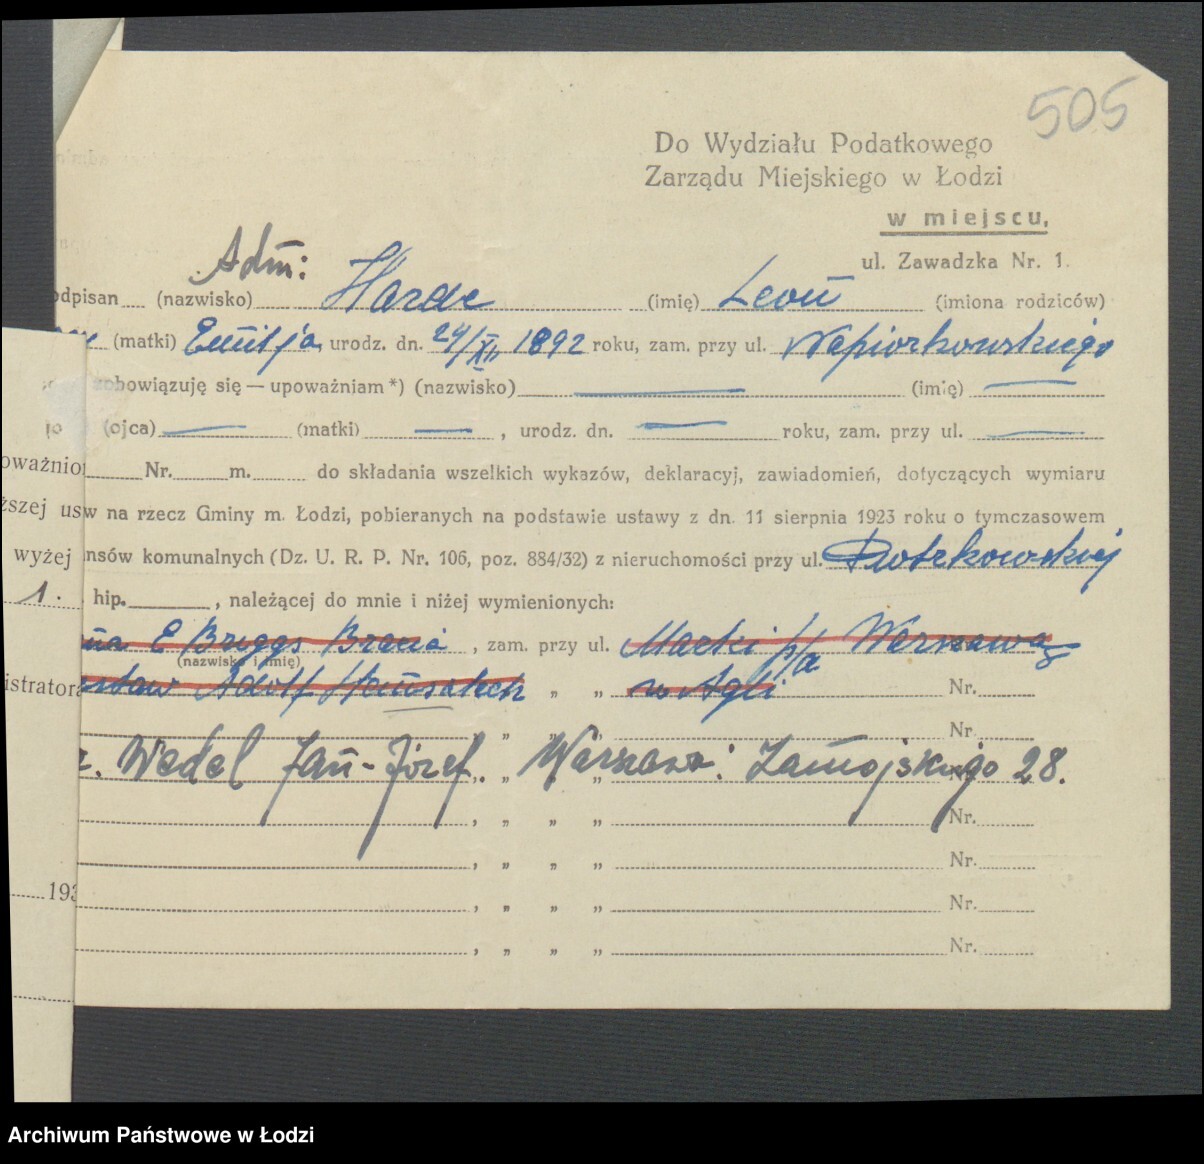 505
Do Wydziału Podatkowego
Zarządu Miejskiego w Łodzi
w miejscu,
ul. Zawadzka Nr. 1.
Adm:
odpisan (nazwisko) Harde (imię) Leon (imiona rodziców)
(matki) Emilja, urodz. dn. 24/XII 1892 roku, zam. przy ul. Napiorkowskiego
zobowiązuję się — upoważniam *) (nazwisko) — (imię) —
(ojca) — (matki) — , urodz. dn. — roku, zam. przy ul. —
oważnio Nr. m. do składania wszelkich wykazów, deklaracyj, zawiadomień, dotyczących wymiaru
ższej us w na rzecz Gminy m. Łodzi, pobieranych na podstawie ustawy z dn. 11 sierpnia 1923 roku o tymczasowem
wyżej nsów komunalnych (Dz. U. R. P. Nr. 106, poz. 884/32) z nieruchomości przy ul. Piotrkowskiej
1. hip. , należącej do mnie i niżej wymienionych:
E Briggs Bracia , zam. przy ul. Marki p/a Warszawa
(nazwisko i imię)
istratora Adolf „ „ w Nr.
, „ „ „ Nr.
Wedel Jan-Józef. „ Warszawa: Zamojskiego 28.
, „ „ „ Nr.
, „ „ „ Nr.
193 , „ „ „ Nr.
, „ „ „ Nr.
Archiwum Państwowe w Łodzi